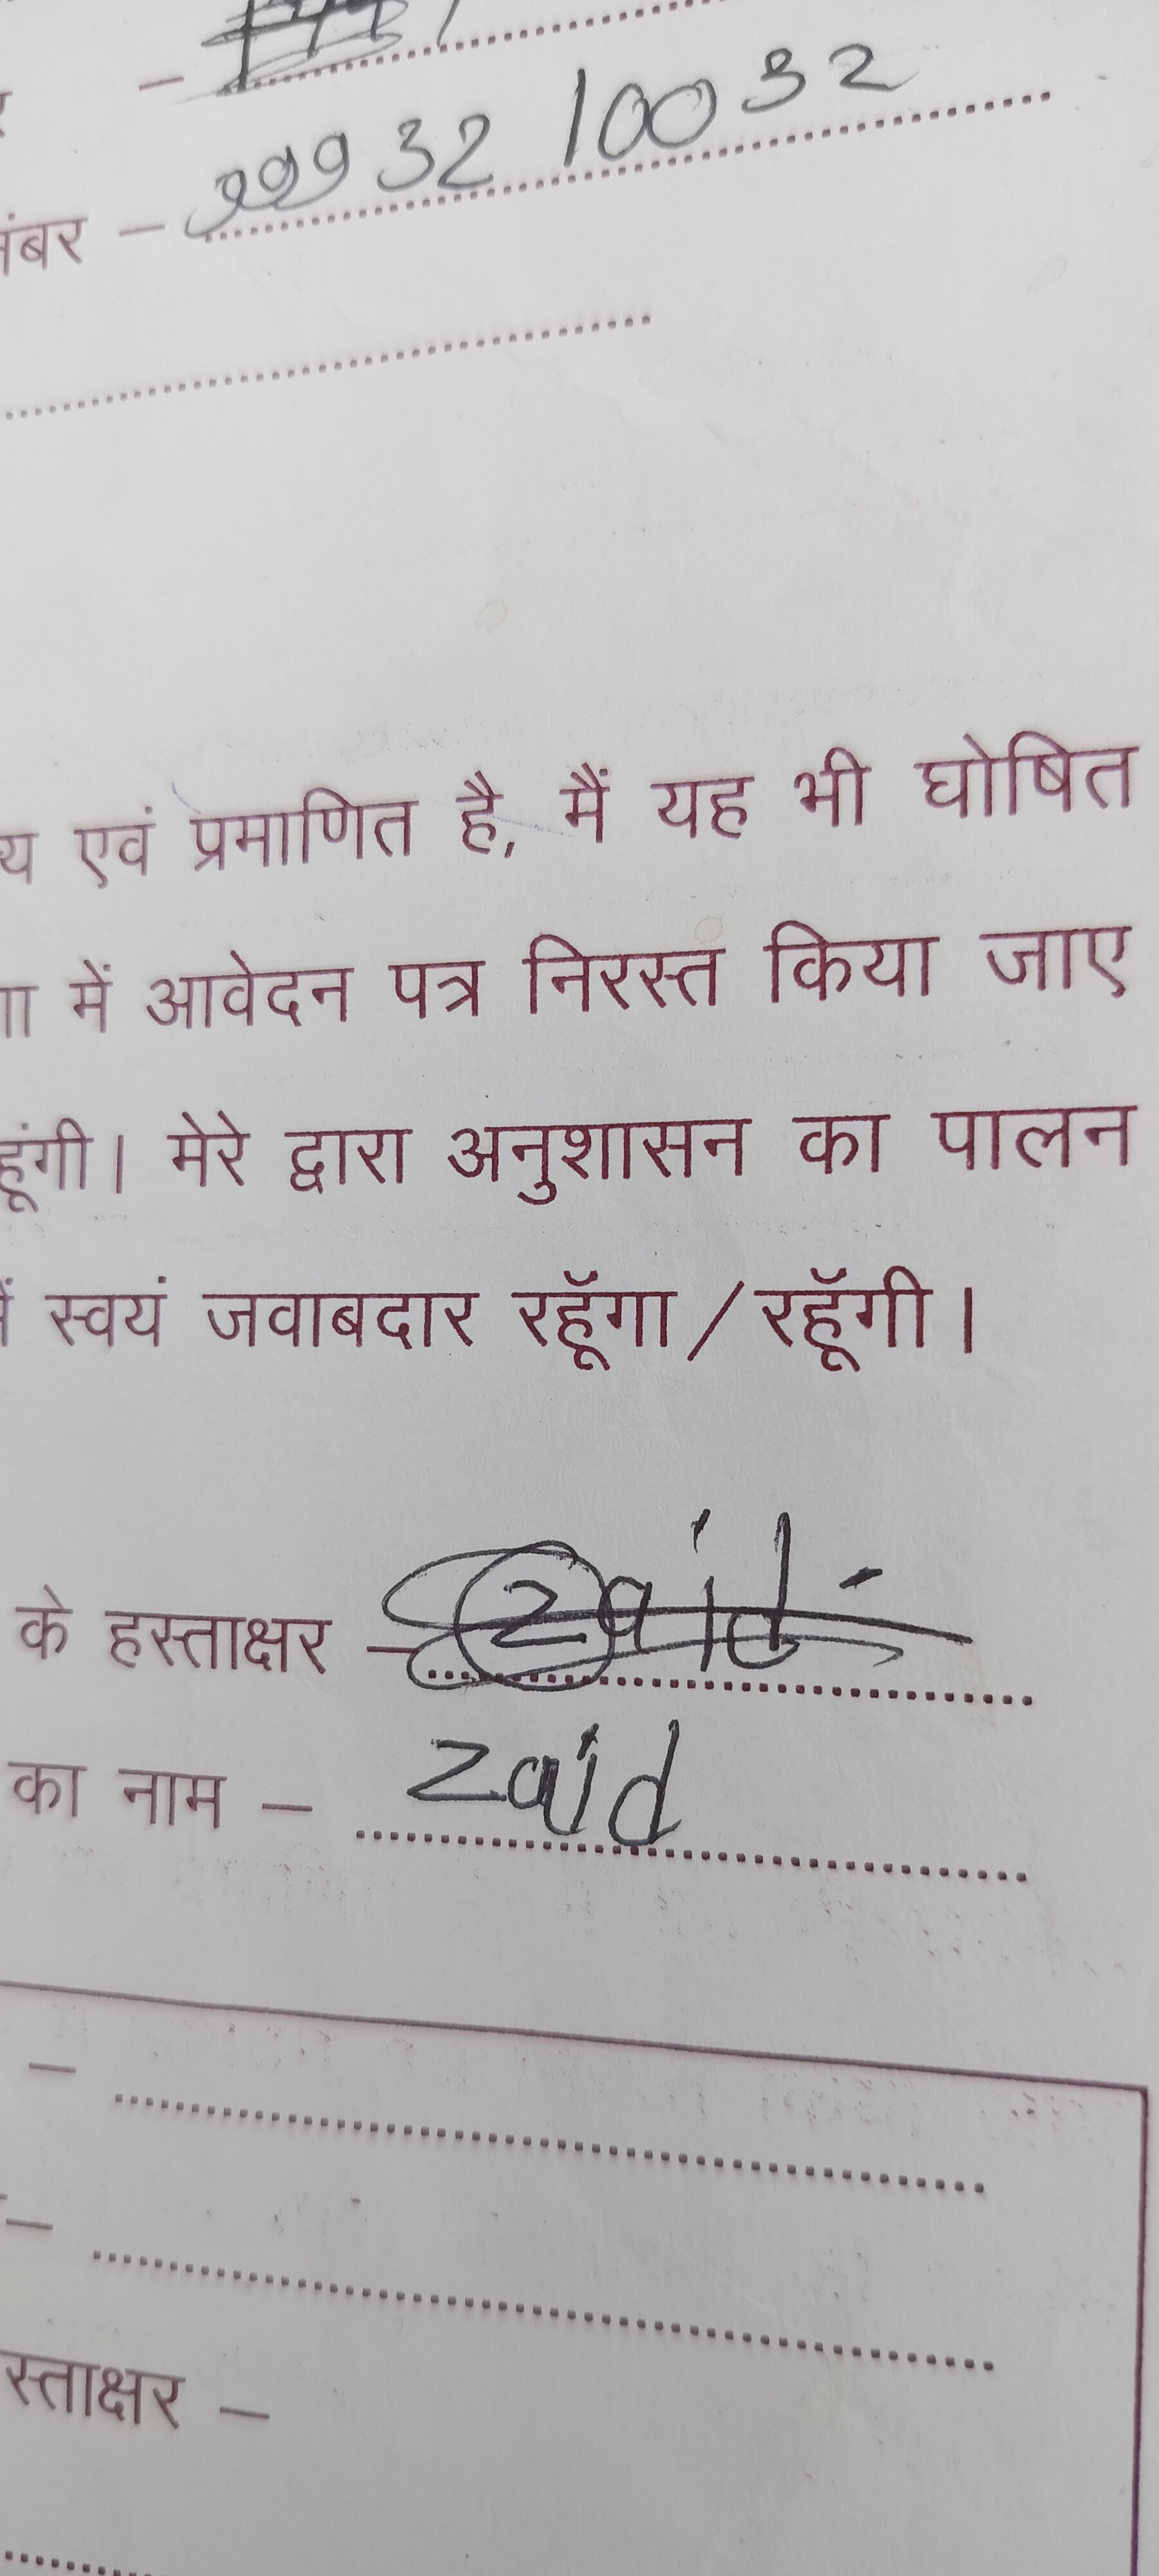 नंबर – 99932 10032
एवं प्रमाणित है, मैं यह भी घोषित
में आवेदन पत्र निरस्त किया जाए
हूंगी। मेरे द्वारा अनुशासन का पालन
स्वयं जवाबदार रहूँगा/रहूँगी।
के हस्ताक्षर – Zaid
का नाम – Zaid
–
–
स्ताक्षर –